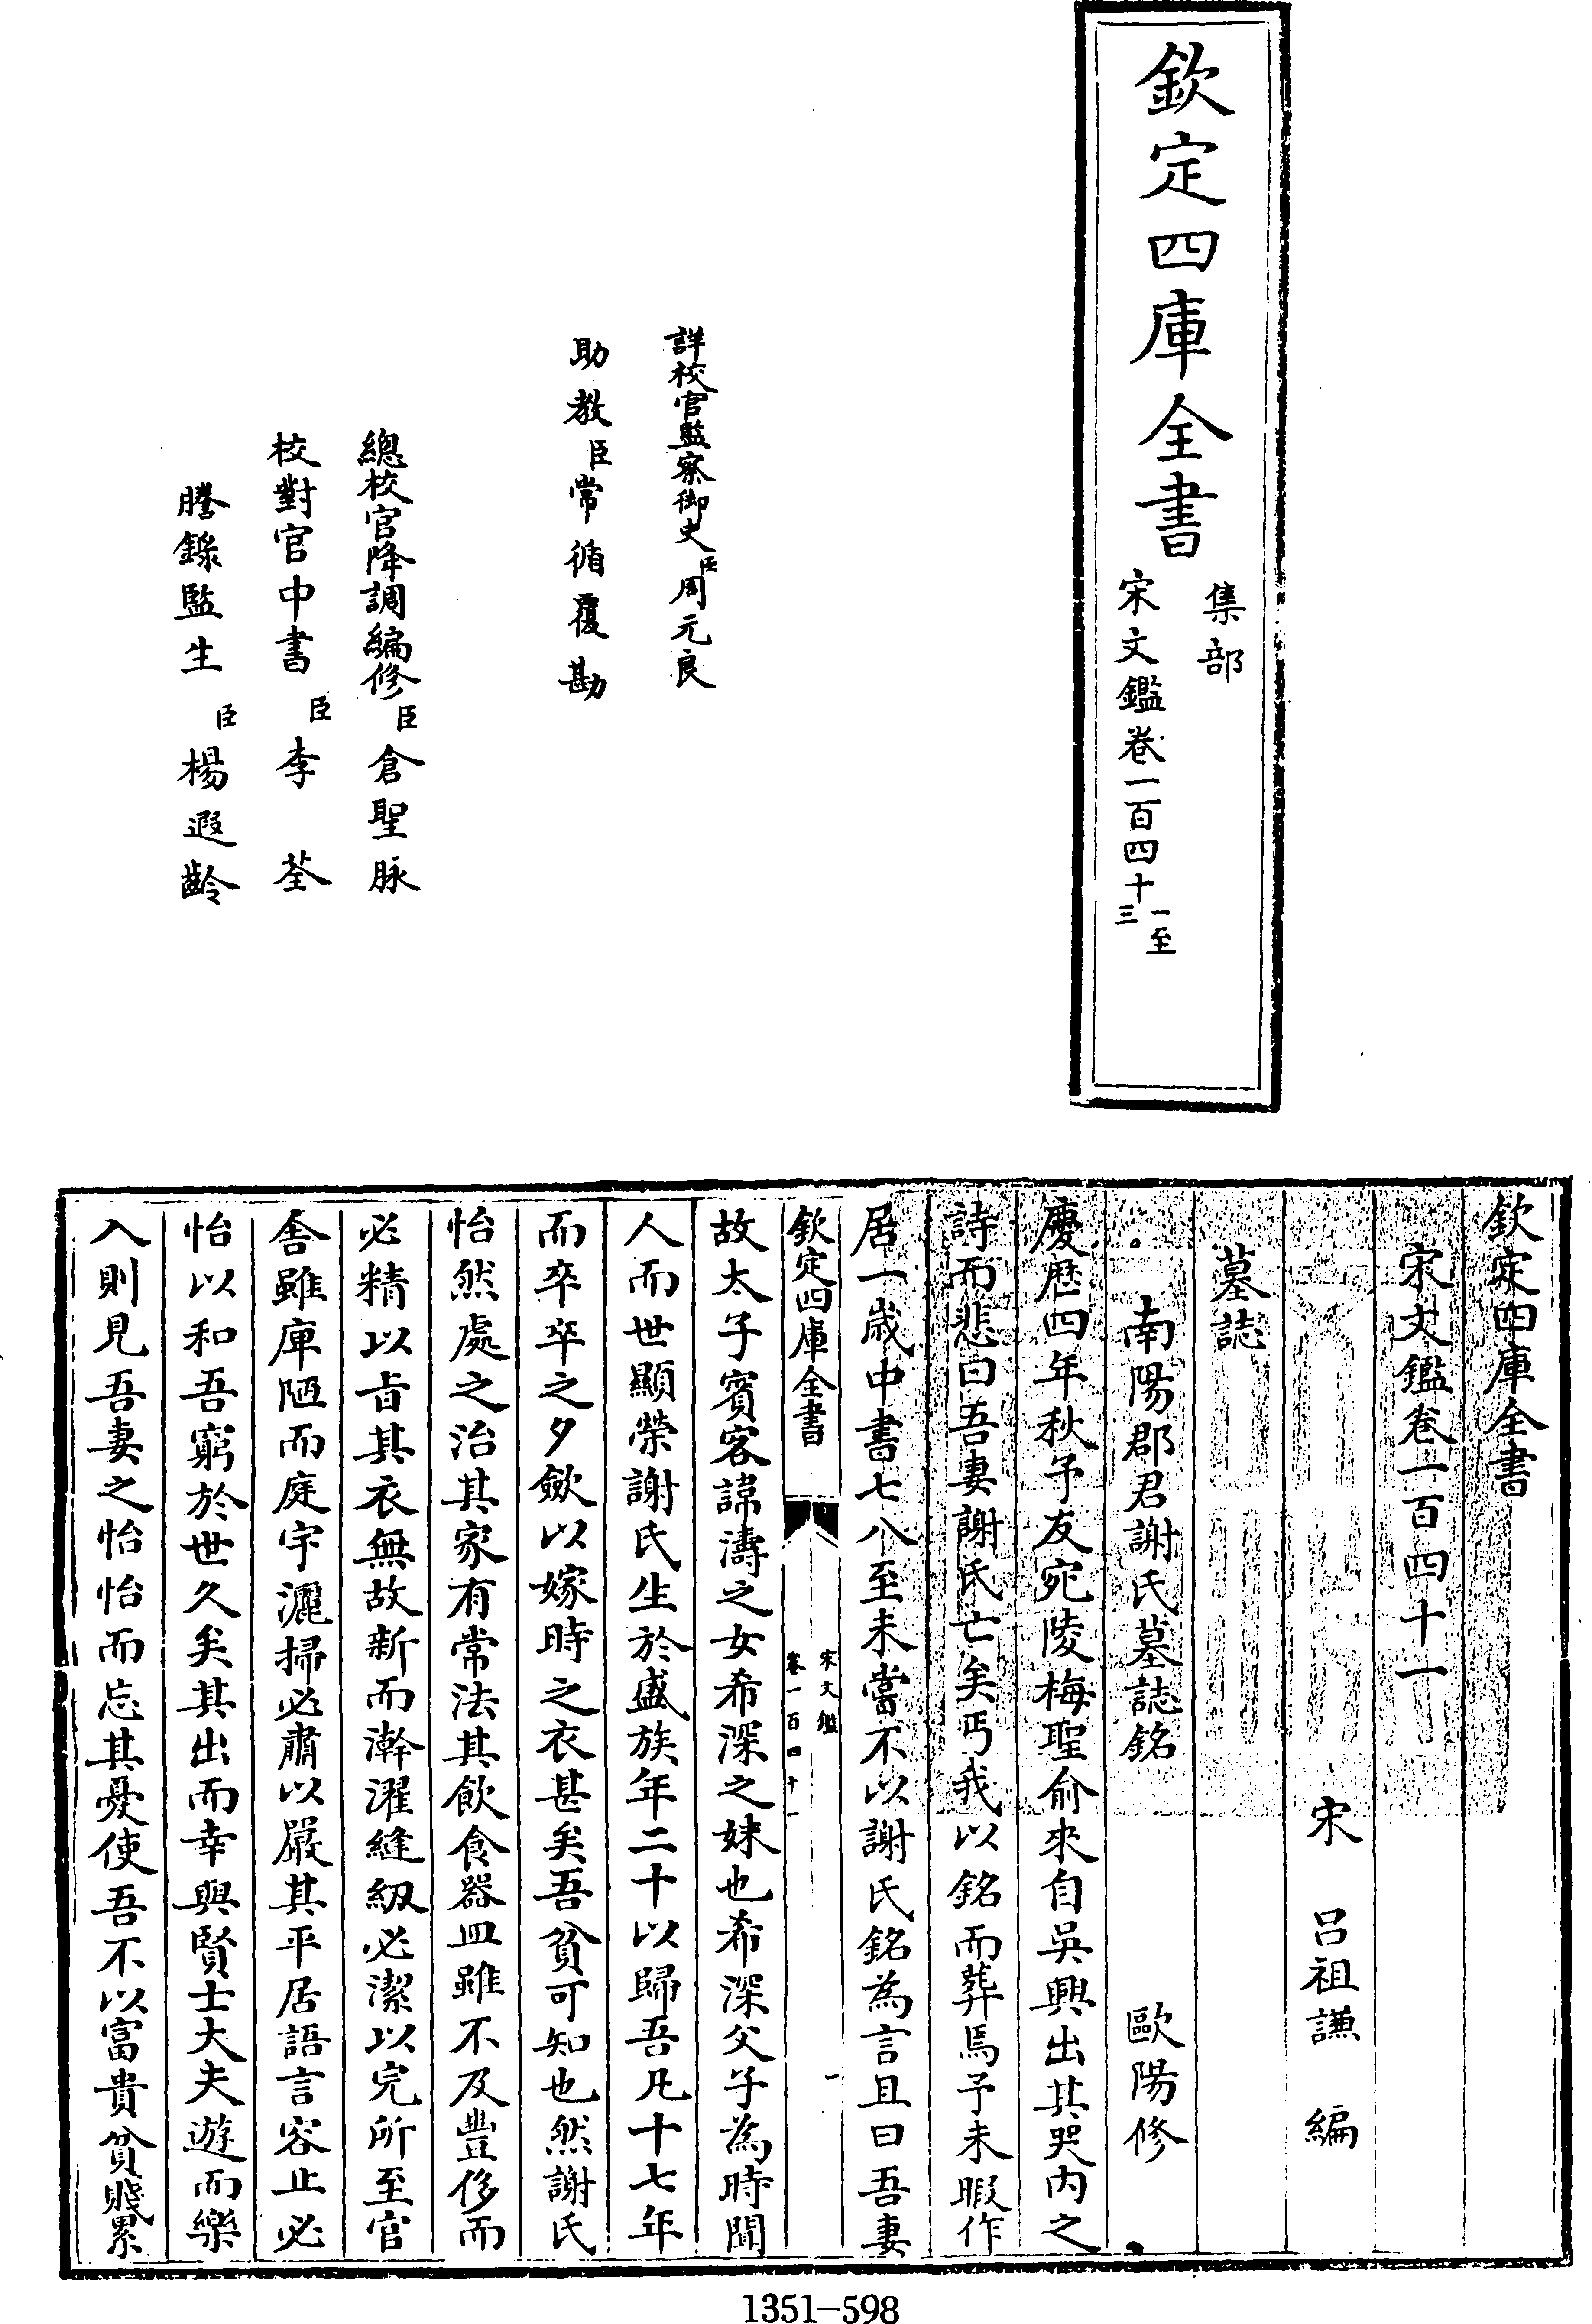 欽定四庫全書
集部
宋文鑑卷一百四十一至三
詳校官監察御史臣周元良
助教臣常循覆勘
總校官降調編修臣倉聖脉
校對官中書臣李荃
謄錄監生臣楊遐齡
欽定四庫全書
宋文鑑卷一百四十一
宋 呂祖謙 編
墓誌
南陽郡君謝氏墓誌銘 歐陽修
慶歴四年秋予友宛陵梅聖俞來自吳興出其哭内之
詩而悲曰吾妻謝氏亡矣丐我以銘而葬焉予未暇作
居一歲中書七八至未嘗不以謝氏銘為言且曰吾妻
欽定四庫全書
宋文鑑
卷一百四十一
一
故太子賓客諱濤之女希深之妹也希深父子為時聞
人而世顯榮謝氏生於盛族年二十以歸吾凡十七年
而卒卒之夕斂以嫁時之衣甚矣吾貧可知也然謝氏
怡然處之治其家有常法其飲食器皿雖不及豐侈而
必精以旨其衣無故新而澣濯縫紉必潔以完所至官
舍雖庳陋而庭宇灑掃必肅以嚴其平居語言容止必
怡以和吾窮於世久矣其出而幸與賢士大夫遊而樂
入則見吾妻之怡怡而忘其憂使吾不以富貴貧賤累
1351-598